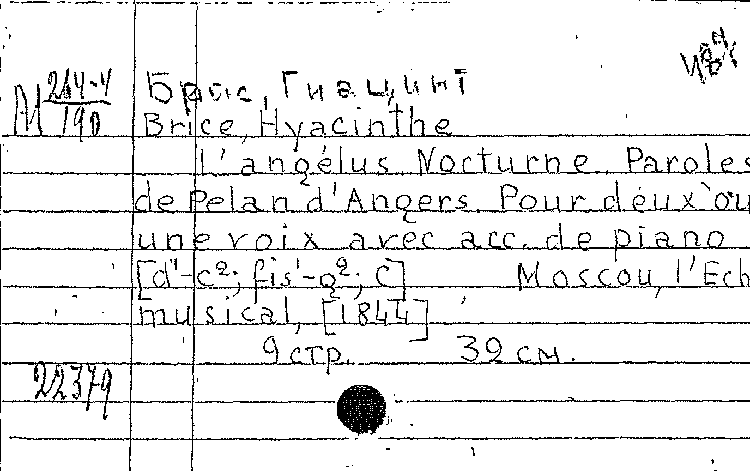 М 264-4/190
Брис, Гиацинт
Brice, Hyacinthe
L'angélus Nocturne. Paroles
de Pelan d'Angers. Pour deux ou
une voix avec acc. de piano
[d¹-c²; fis¹-g²; C] Moscou, l'Ech
musical, [1844]
9 стр. 32 см.
22379